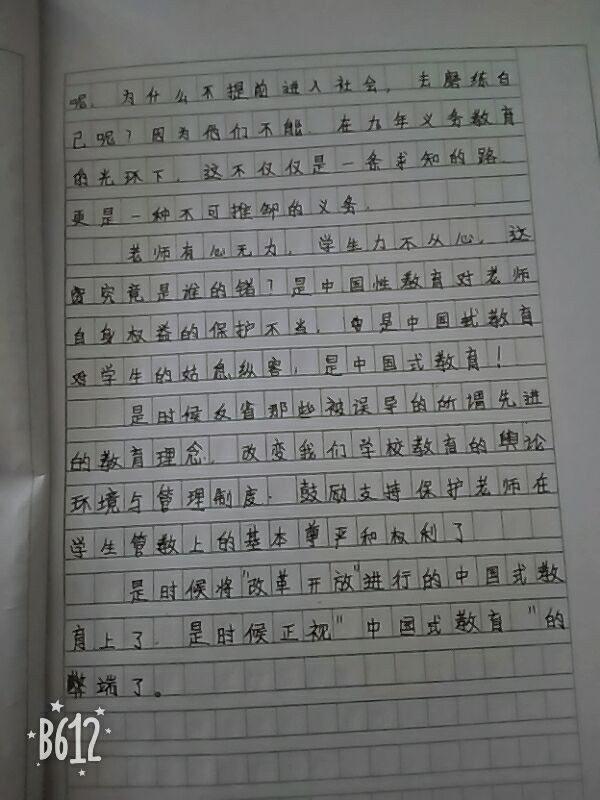 呢。为什么不提前进入社会，去磨练自
己呢？因为他们不能。在九年义务教育
的光环下，这不仅仅是一条求知的路，
更是一种不可推卸的义务。
老师有心无力，学生力不从心，这
究竟是谁的错？是中国性教育对老师
自身权益的保护不当，是中国式教育
对学生的姑息纵容，是中国式教育！
是时候反省那些被误导的所谓先进
的教育理念，改变我们学校教育的舆论
环境与管理制度，鼓励支持保护老师在
学生管教上的基本尊严和权利了
是时候将"改革开放"进行的中国式教
育上了，是时候正视"中国式教育"的
弊端了。
B612